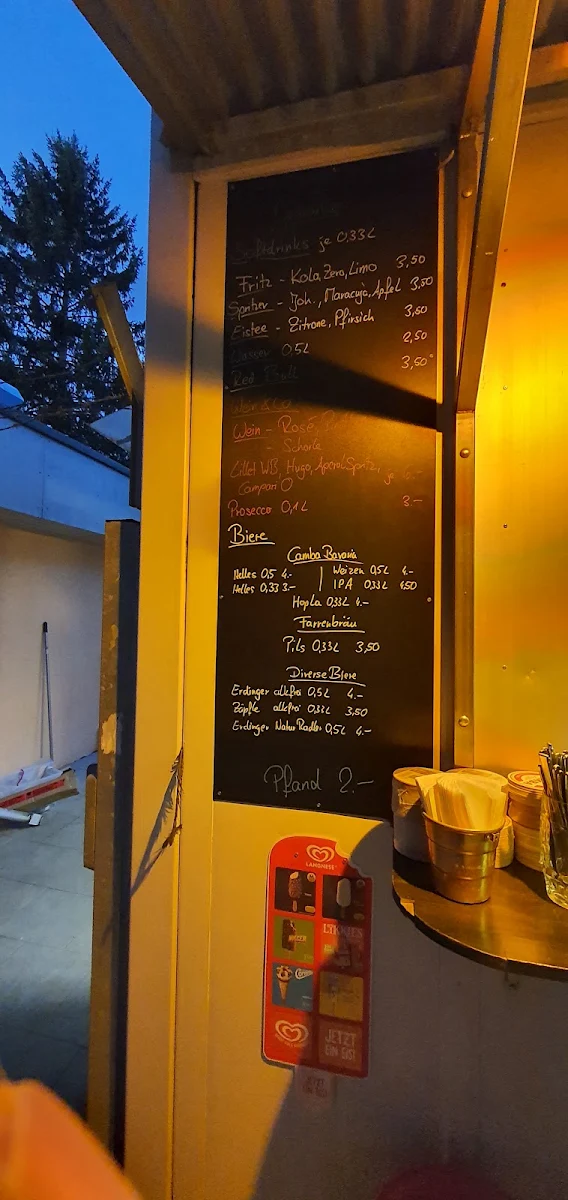 Softdrinks je 0,33L
Fritz - Kola, Zero, Limo 3,50
Spritzer - Joh., Maracuja, Apfel 3,50
Eistee - Zitrone, Pfirsich 3,50
Wasser 0,5L 2,50
Red Bull 3,50
Wein - Rosé,
- Schorle
Lillet WB, Hugo, Aperol Spritz, je
Campari O
Prosecco 0,1L 3.-
Biere
Camba Bavaria
Helles 0,5 4.- | Weizen 0,5L 4.-
Helles 0,33 3.- | IPA 0,33L 4,50
Hopla 0,33L 4.-
Farrenbräu
Pils 0,33L 3,50
Diverse Biere
Erdinger alkfrei 0,5L 4.-
Zäpfle alkfrei 0,33L 3,50
Erdinger Natur Radler 0,5L 4.-
Pfand 2.-
LANGNESE
JETZT
EIN EIS!